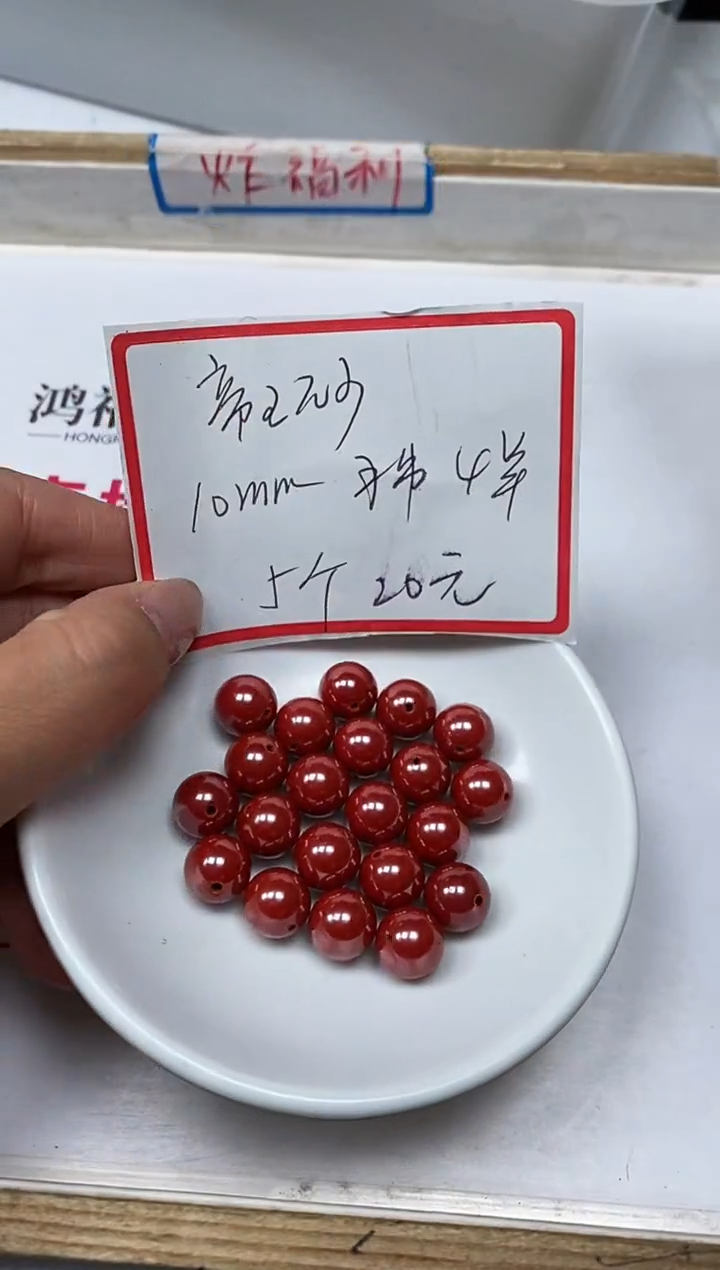 炸福利
鸿福
HONG
帝王砂
10mm 手串 4羊
5个 20元